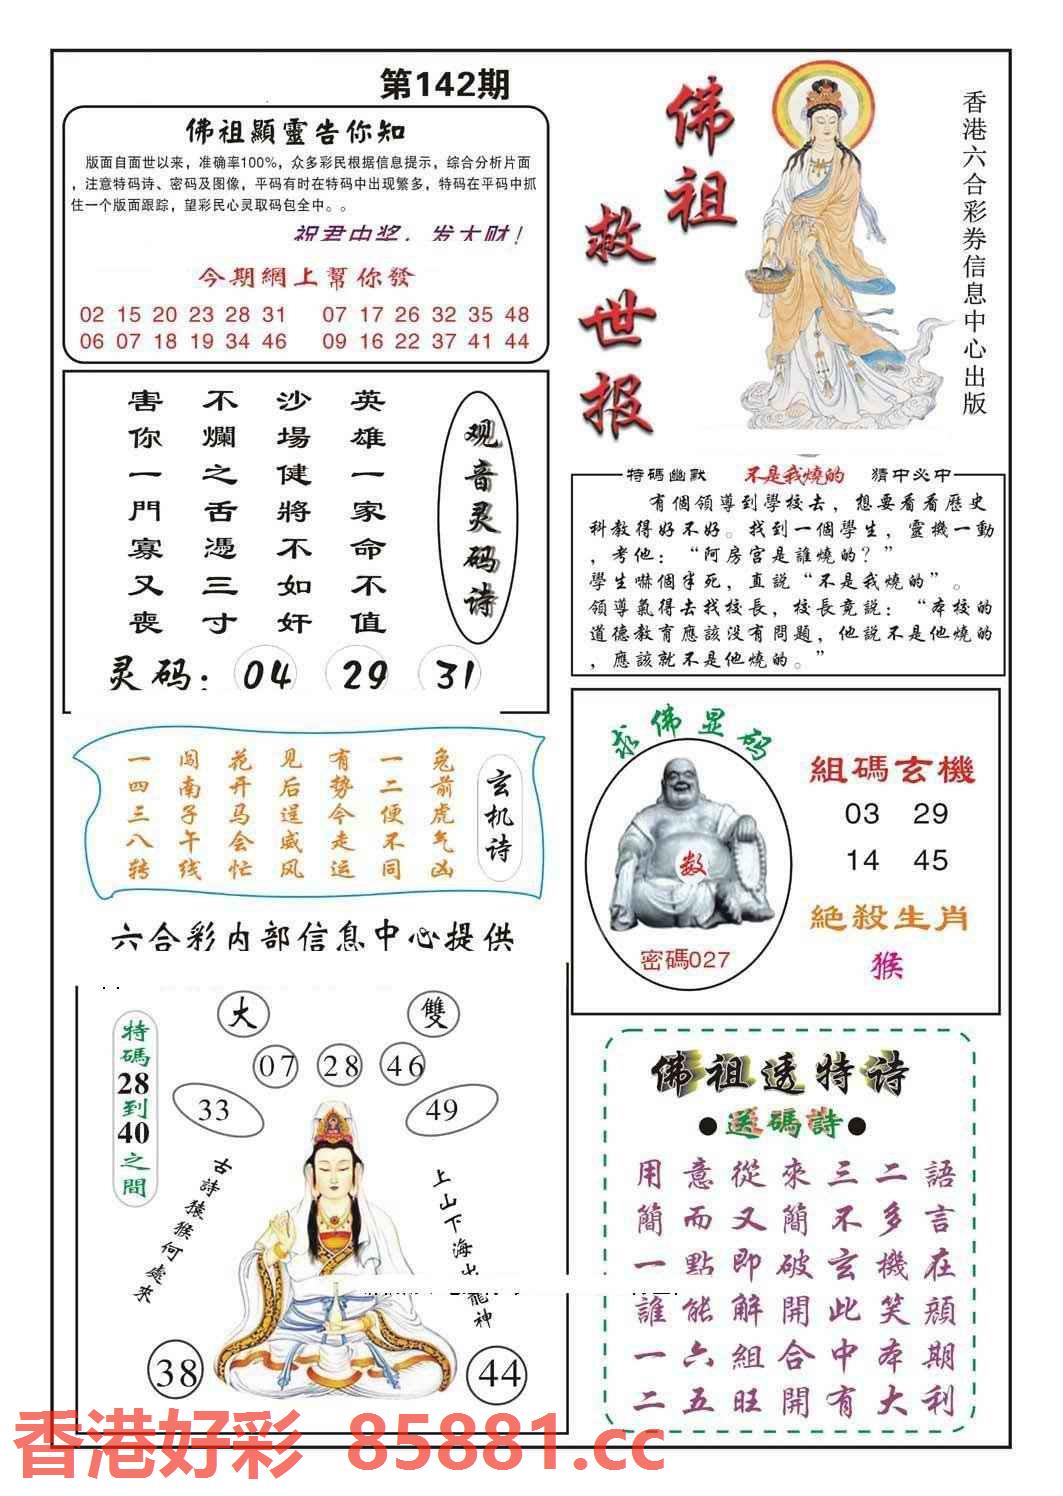 第142期
佛祖顯靈告你知
版面自面世以来，准确率100%，众多彩民根据信息提示，综合分析片面
，注意特码诗、密码及图像，平码有时在特码中出现繁多，特码在平码中抓
住一个版面跟踪，望彩民心灵取码包全中。。
祝君中奖，发大财！
今期網上幫你發
02 15 20 23 28 31 07 17 26 32 35 48
06 07 18 19 34 46 09 16 22 37 41 44
佛祖
救世报
香港六合彩券信息中心出版
观音灵码诗
英雄一家命不值
沙場健將不如奸
不爛之舌憑三寸
害你一門寡又喪
灵码：04 29 31
特碼幽默 不是我燒的 猜中必中
有個領導到學校去，想要看看歷史
科教得好不好。找到一個學生，靈機一動
，考他：“阿房宫是誰燒的？”
學生嚇個半死，直説“不是我燒的”。
領導氣得去找校長，校長竟説：“本校的
道德教育應該没有問題，他説不是他燒的
，應該就不是他燒的。”
玄机诗
兔前虎气凶
一二便不同
有势今走运
见后逞威风
花开马会忙
闯南子午线
一四三八转
六合彩内部信息中心提供
求佛显码
数
密碼027
組碼玄機
03 29
14 45
絕殺生肖
猴
特碼28到40之間
大 雙
07 28 46
33 49
古詩猿猴何處來
38 44
佛祖透特诗
●送碼詩●
用意從來三二語
簡而又簡不多言
一點即破玄機在
誰能解開此笑顔
一六組合中本期
二五旺開有大利
香港好彩 85881.cc